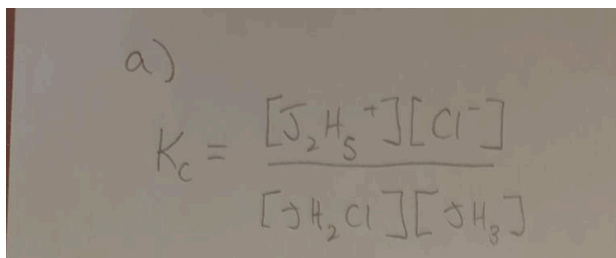 a)
Kc = [J₂H₅⁺][Cl⁻]
[JH₂Cl][JH₃]